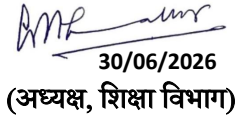 30/06/2026
(अध्यक्ष, शिक्षा विभाग)